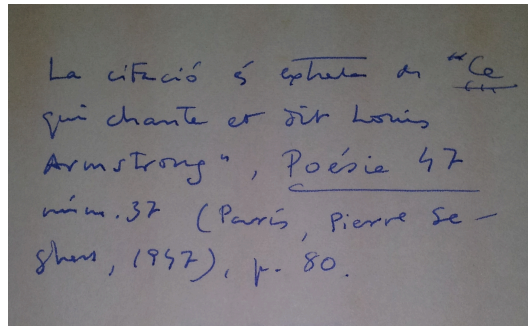 La citació és extreta de "Ce
qui chante et dit Louis
Armstrong", Poésie 47
núm. 37 (París, Pierre Se-
ghers, 1947), p. 80.